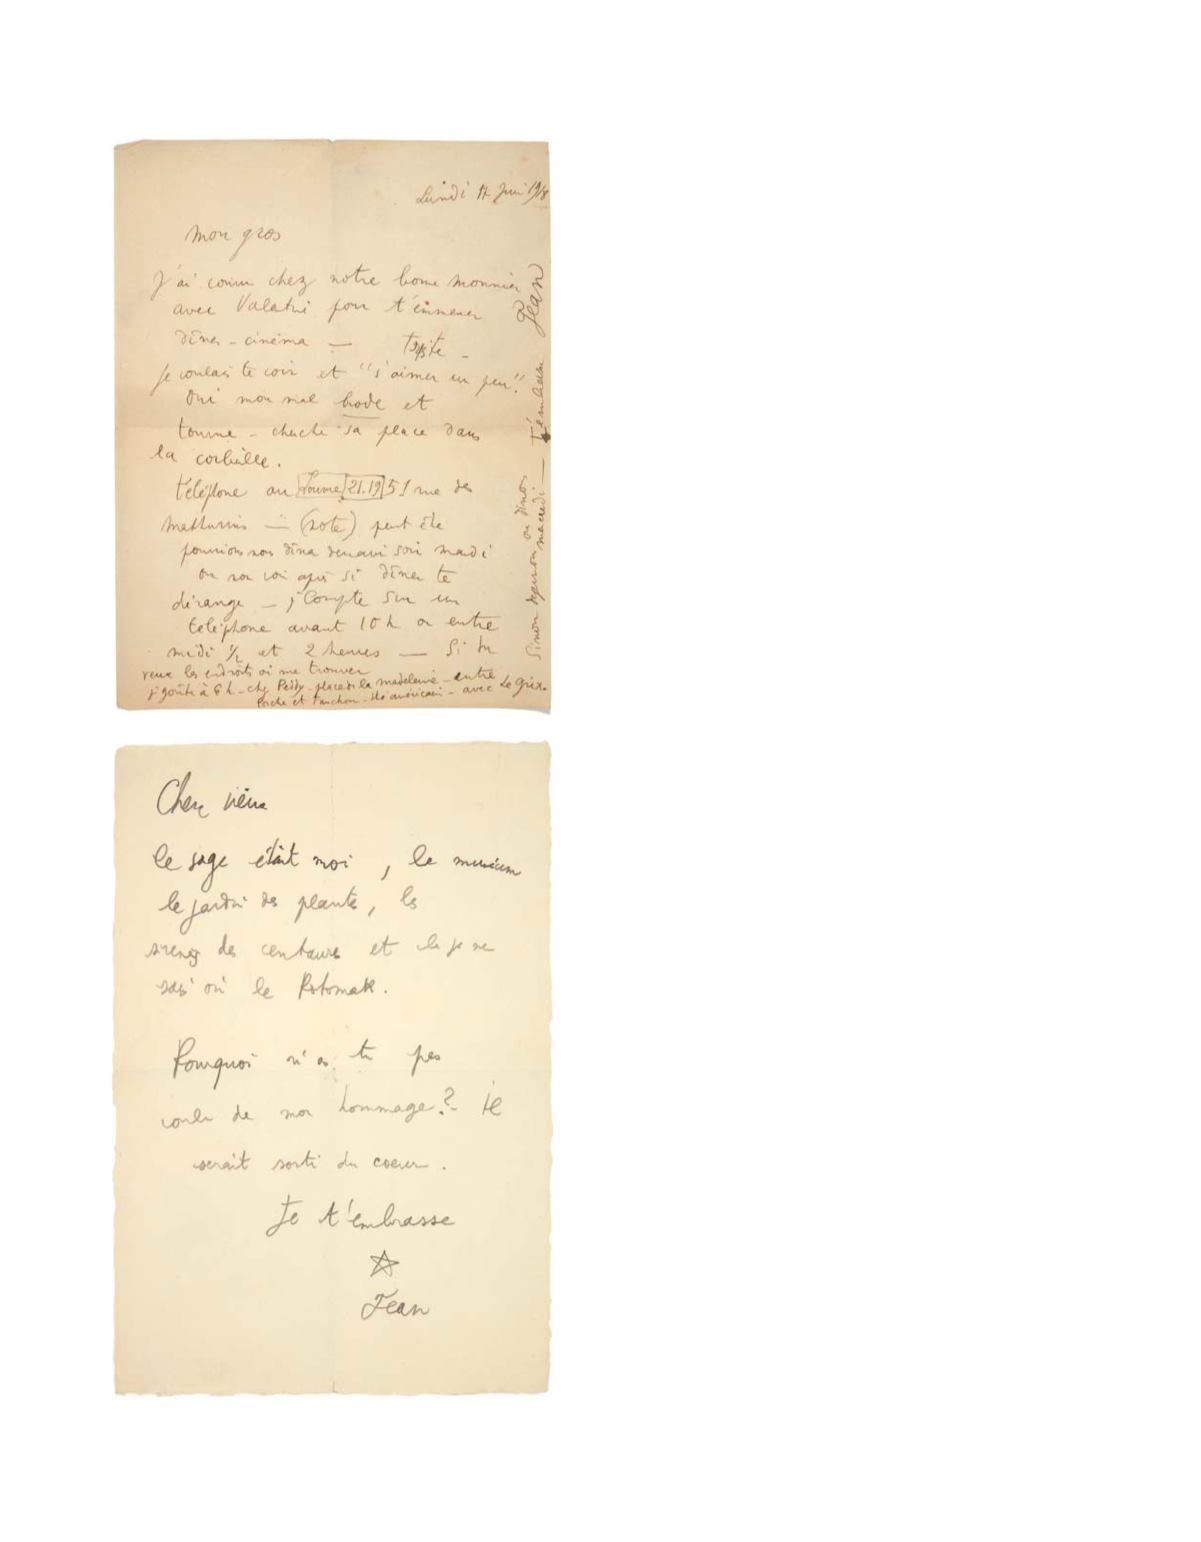 Lundi 17 Juin 1918
Mon gros
J'ai couru chez notre bonne monnier
avec Valentine pour t'emmener
dîner - cinéma — triste -
je voulais te voir et "s'aimer un peu".
Oui mon mal brode et
tourne - cherche sa place dans
la corbeille.
téléphone au 21.19 51 rue des
mathurins — (note) peut être
pourrions nous dîner demain soir mardi
ou nous voir après si dîner te
dérange — j'compte sur un
téléphone avant 10 h ou entre
midi ½ et 2 heures — Si tu
veux les endroits où me trouver
j'goûte à 6 h - chez place de la madeleine - entre
et Fauchon - américain - avec Le Grix.
Sinon ou dînons
mercredi — t'embrasse Jean
Cher vieux
le sage était moi, le muséum
le jardin des plantes, les
sirenes des centaures et le je ne
sais où le Potomak.
Pourquoi n'as tu pas
voulu de mon hommage? Il
serait sorti du coeur.
Je t'embrasse
Jean